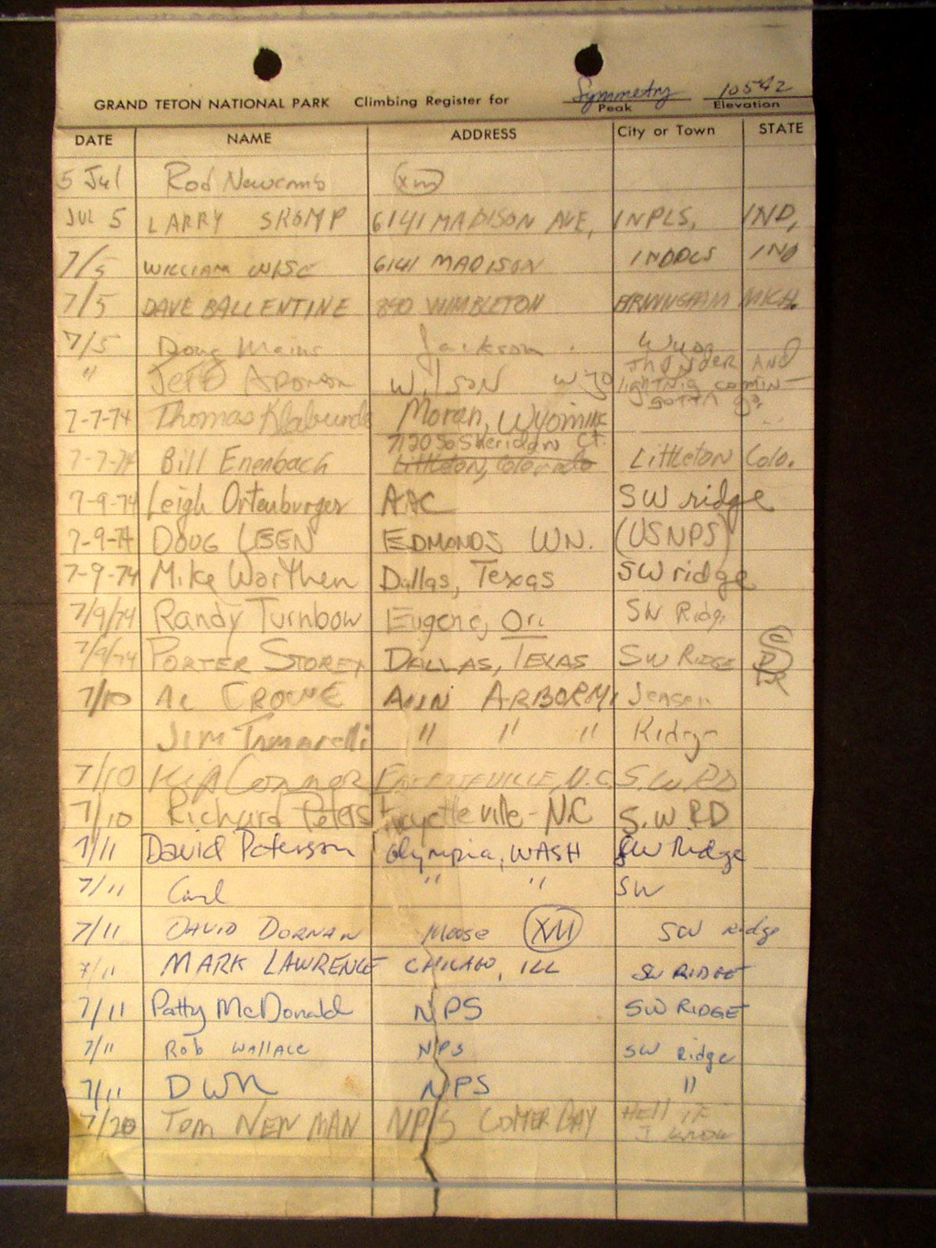 Symmetry 10542
GRAND TETON NATIONAL PARK Climbing Register for Peak Elevation
DATE NAME ADDRESS City or Town STATE
5 Jul Rod Newcomb XIII
JUL 5 LARRY SROMP 6141 MADISON AVE, INPLS, IND,
7/5 WILLIAM WISE 6141 MADISON IND
7/5 DAVE BALLENTINE 840 WIMBLETON MICH.
7/5 Doug Mains Jackson Wyo
" Jeff WILSON WYO THUNDER AND
lightnig comin
GOTTA go
7-7-74 Thomas Klabunde Moran, Wyoming
7120 So Sheridan Ct.
7-7-74 Bill Enenbach Littleton, Colorado Littleton Colo.
7-9-74 Leigh Ortenburger AAC SW ridge
7-9-74 DOUG EDMONDS WN. (USNPS)
7-9-74 Mike Warthen Dallas, Texas SW ridge
7/9/74 Randy Turnbow Eugene, Or. SW Ridge
7/9/74 PORTER STOREY DALLAS, TEXAS SW RIDGE
7/10 AL CROUE ANN ARBOR MI Jensen
Jim Tamarelli " " " Ridge
7/10 Kip Connor FAYETTEVILLE, N.C. S.W RD
7/10 Richard Peters Fayetteville-NC S.W RD
7/11 David Peterson Olympia, WASH SW Ridge
7/11 Carl " " SW
7/11 DAVID DORNAN Moose XIII SW Ridge
7/11 MARK LAWRENCE CHICAGO, ILL SW RIDGE
7/11 Patty McDonald NPS SW RIDGE
7/11 Rob Wallace NPS SW Ridge
7/11 DWM NPS "
7/20 TOM NEWMAN NPS COLTER BAY HELL IF
I KNOW